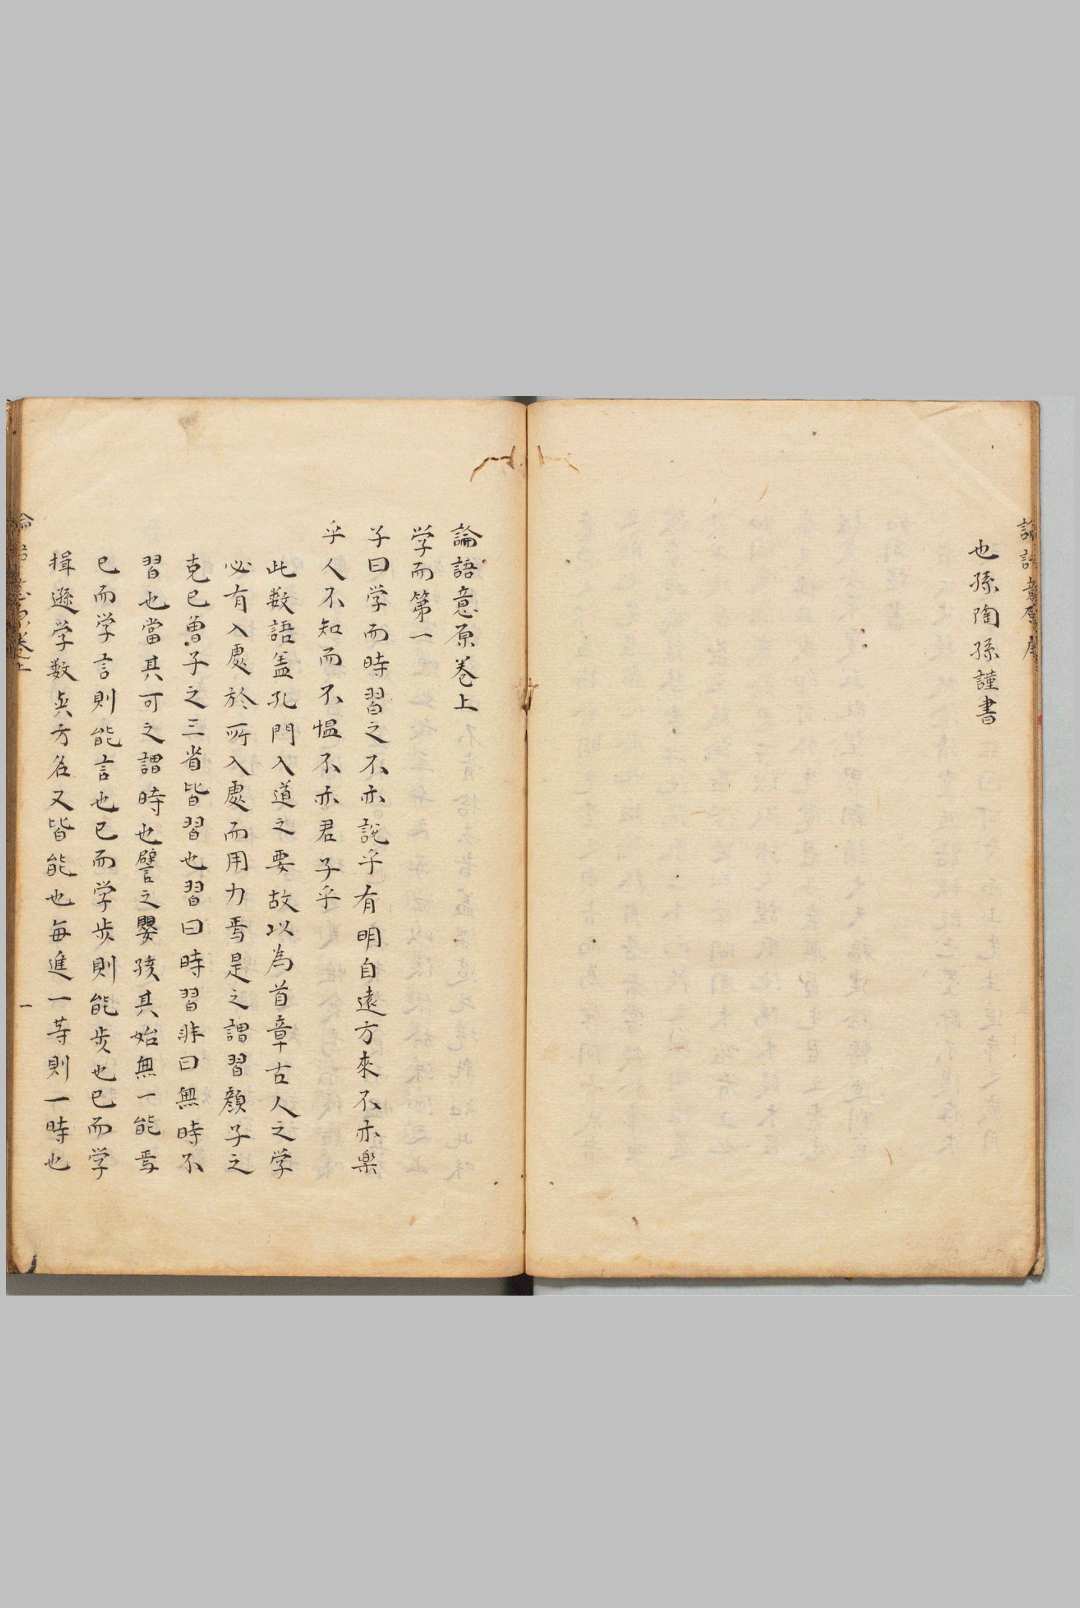 論語意原序
也孫陶孫謹書
論語意原巻上
学而第一
子曰学而時習之不亦説乎有明自遠方來不亦楽
乎人不知而不愠不亦君子乎
此数語盖孔門入道之要故以為首章古人之学
必有入處於所入處而用力焉是之謂習顔子之
克己曽子之三省皆習也習曰時習非曰無時不
習也當其可之謂時也譬之嬰孩其始無一能焉
已而学言則能言也已而学歩則能歩也已而学
揖遜学数與方名又皆能也毎進一等則一時也
論語意原巻上
一